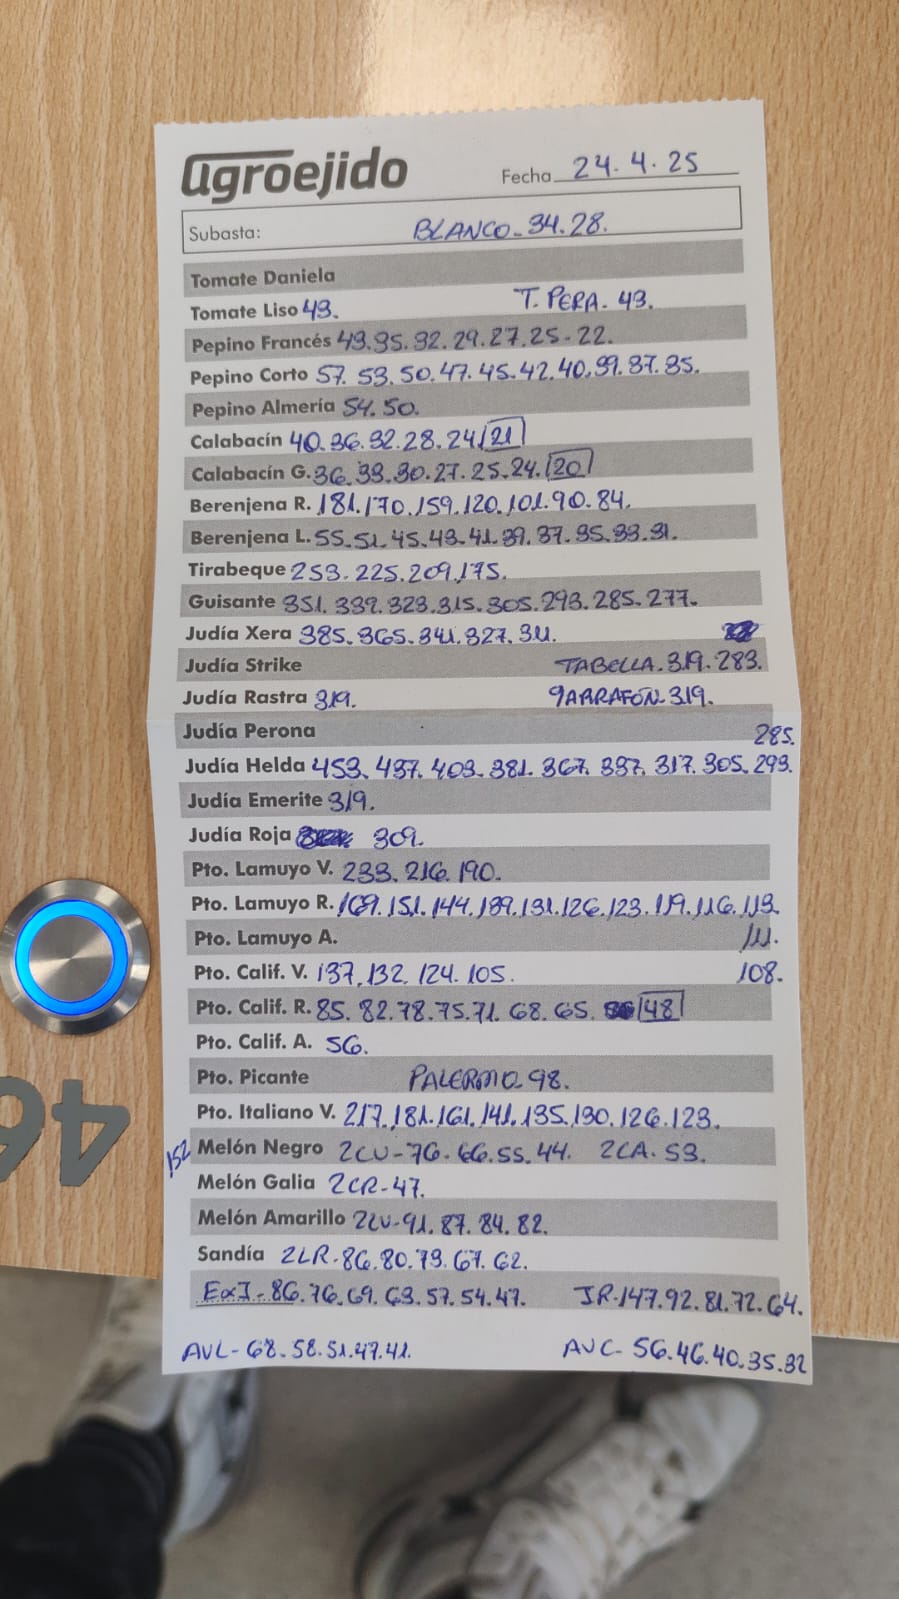 agroejido
Fecha 24.4.25
Subasta: BLANCO-34.28.
Tomate Daniela
Tomate Liso 43. T. PERA-43.
Pepino Francés 43.35.32.29.27.25-22.
Pepino Corto 57.53.50.47.45.42.40.39.37.35.
Pepino Almería 54.50.
Calabacín 40.36.32.28.24/21
Calabacín G. 36.33.30.27.25.24.20
Berenjena R. 181.170.159.120.101.90.84.
Berenjena L. 55.51.45.43.41.39.37.35.33.31.
Tirabeque 253.225.209.175.
Guisante 351.339.323.315.305.293.285.277.
Judía Xera 385.365.341.327.311.
Judía Strike TABELLA.319.283.
Judía Rastra 319. GARRAFÓN-319.
Judía Perona 285.
Judía Helda 453.437.403.381.367.337.317.305.293.
Judía Emerite 319.
Judía Roja 309.
Pto. Lamuyo V. 233.216.190.
Pto. Lamuyo R. 169.151.144.139.131.126.123.119.116.113.
Pto. Lamuyo A. 111.
Pto. Calif. V. 137.132.124.105. 108.
Pto. Calif. R. 85.82.78.75.71.68.65. 48
Pto. Calif. A. 56.
Pto. Picante PALERMO 98.
Pto. Italiano V. 217.181.161.141.135.130.126.123.
152 Melón Negro 2CU-76.66.55.44. 2CA.53.
Melón Galia 2CR-47.
Melón Amarillo 2LV-91.87.84.82.
Sandía 2LR-86.80.73.67.62.
ExI-86.76.69.63.57.54.47. JR-147.92.81.72.64.
AVL-68.58.51.47.41. AVC-56.46.40.35.32
46